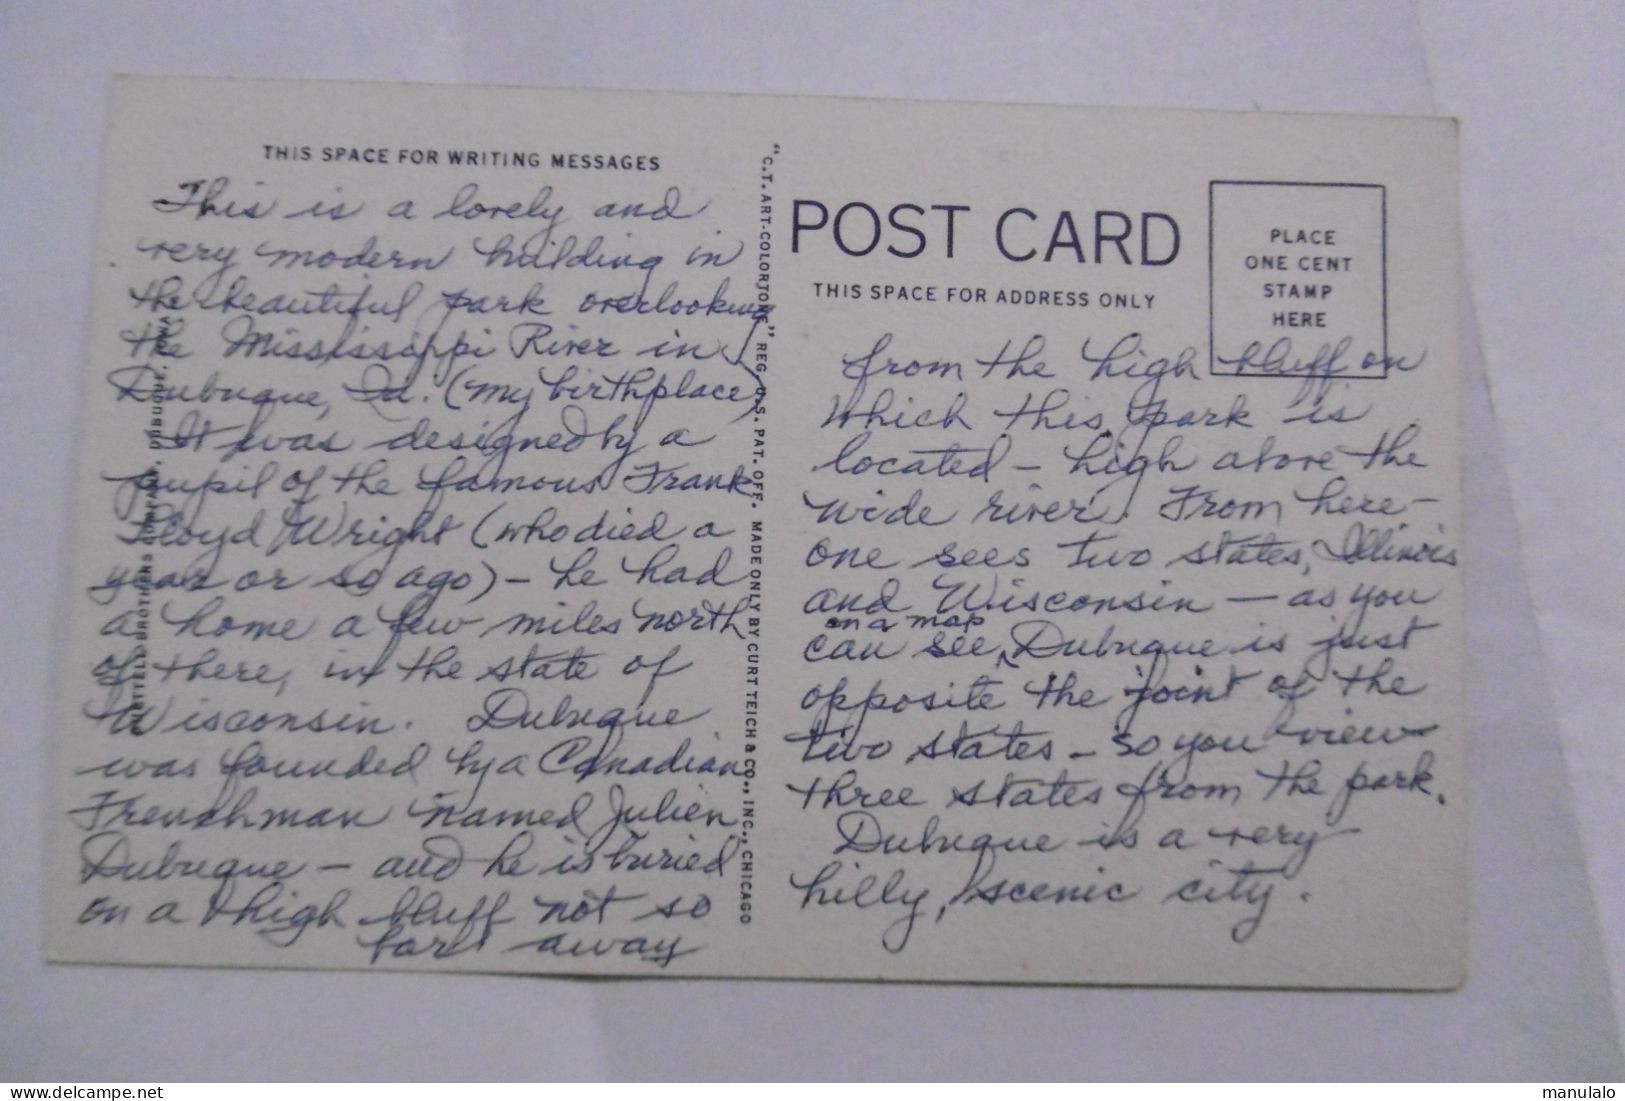 THIS SPACE FOR WRITING MESSAGES
This is a lovely and
very modern building in
the beautiful park overlooking
the Mississippi River in
Dubuque, Ia. (my birthplace).
It was designed by a
pupil of the famous Frank
Lloyd Wright (who died a
year or so ago) – he had
a home a few miles north
of there, in the state of
Wisconsin. Dubuque
was founded by a Canadian
Frenchman named Julien
Dubuque – and he is buried
on a high bluff not so
far away
"C.T. ART-COLORTONE" REG. U.S. PAT. OFF. MADE ONLY BY CURT TEICH & CO., INC., CHICAGO
POST CARD
THIS SPACE FOR ADDRESS ONLY
PLACE
ONE CENT
STAMP
HERE
from the high bluff on
which this park is
located – high above the
wide river. From here –
one sees two states, Illinois
and Wisconsin – as you
on a map
can see, Dubuque is just
opposite the joint of the
two states – so you view
three states from the park.
Dubuque is a very
hilly, scenic city.
manulalo